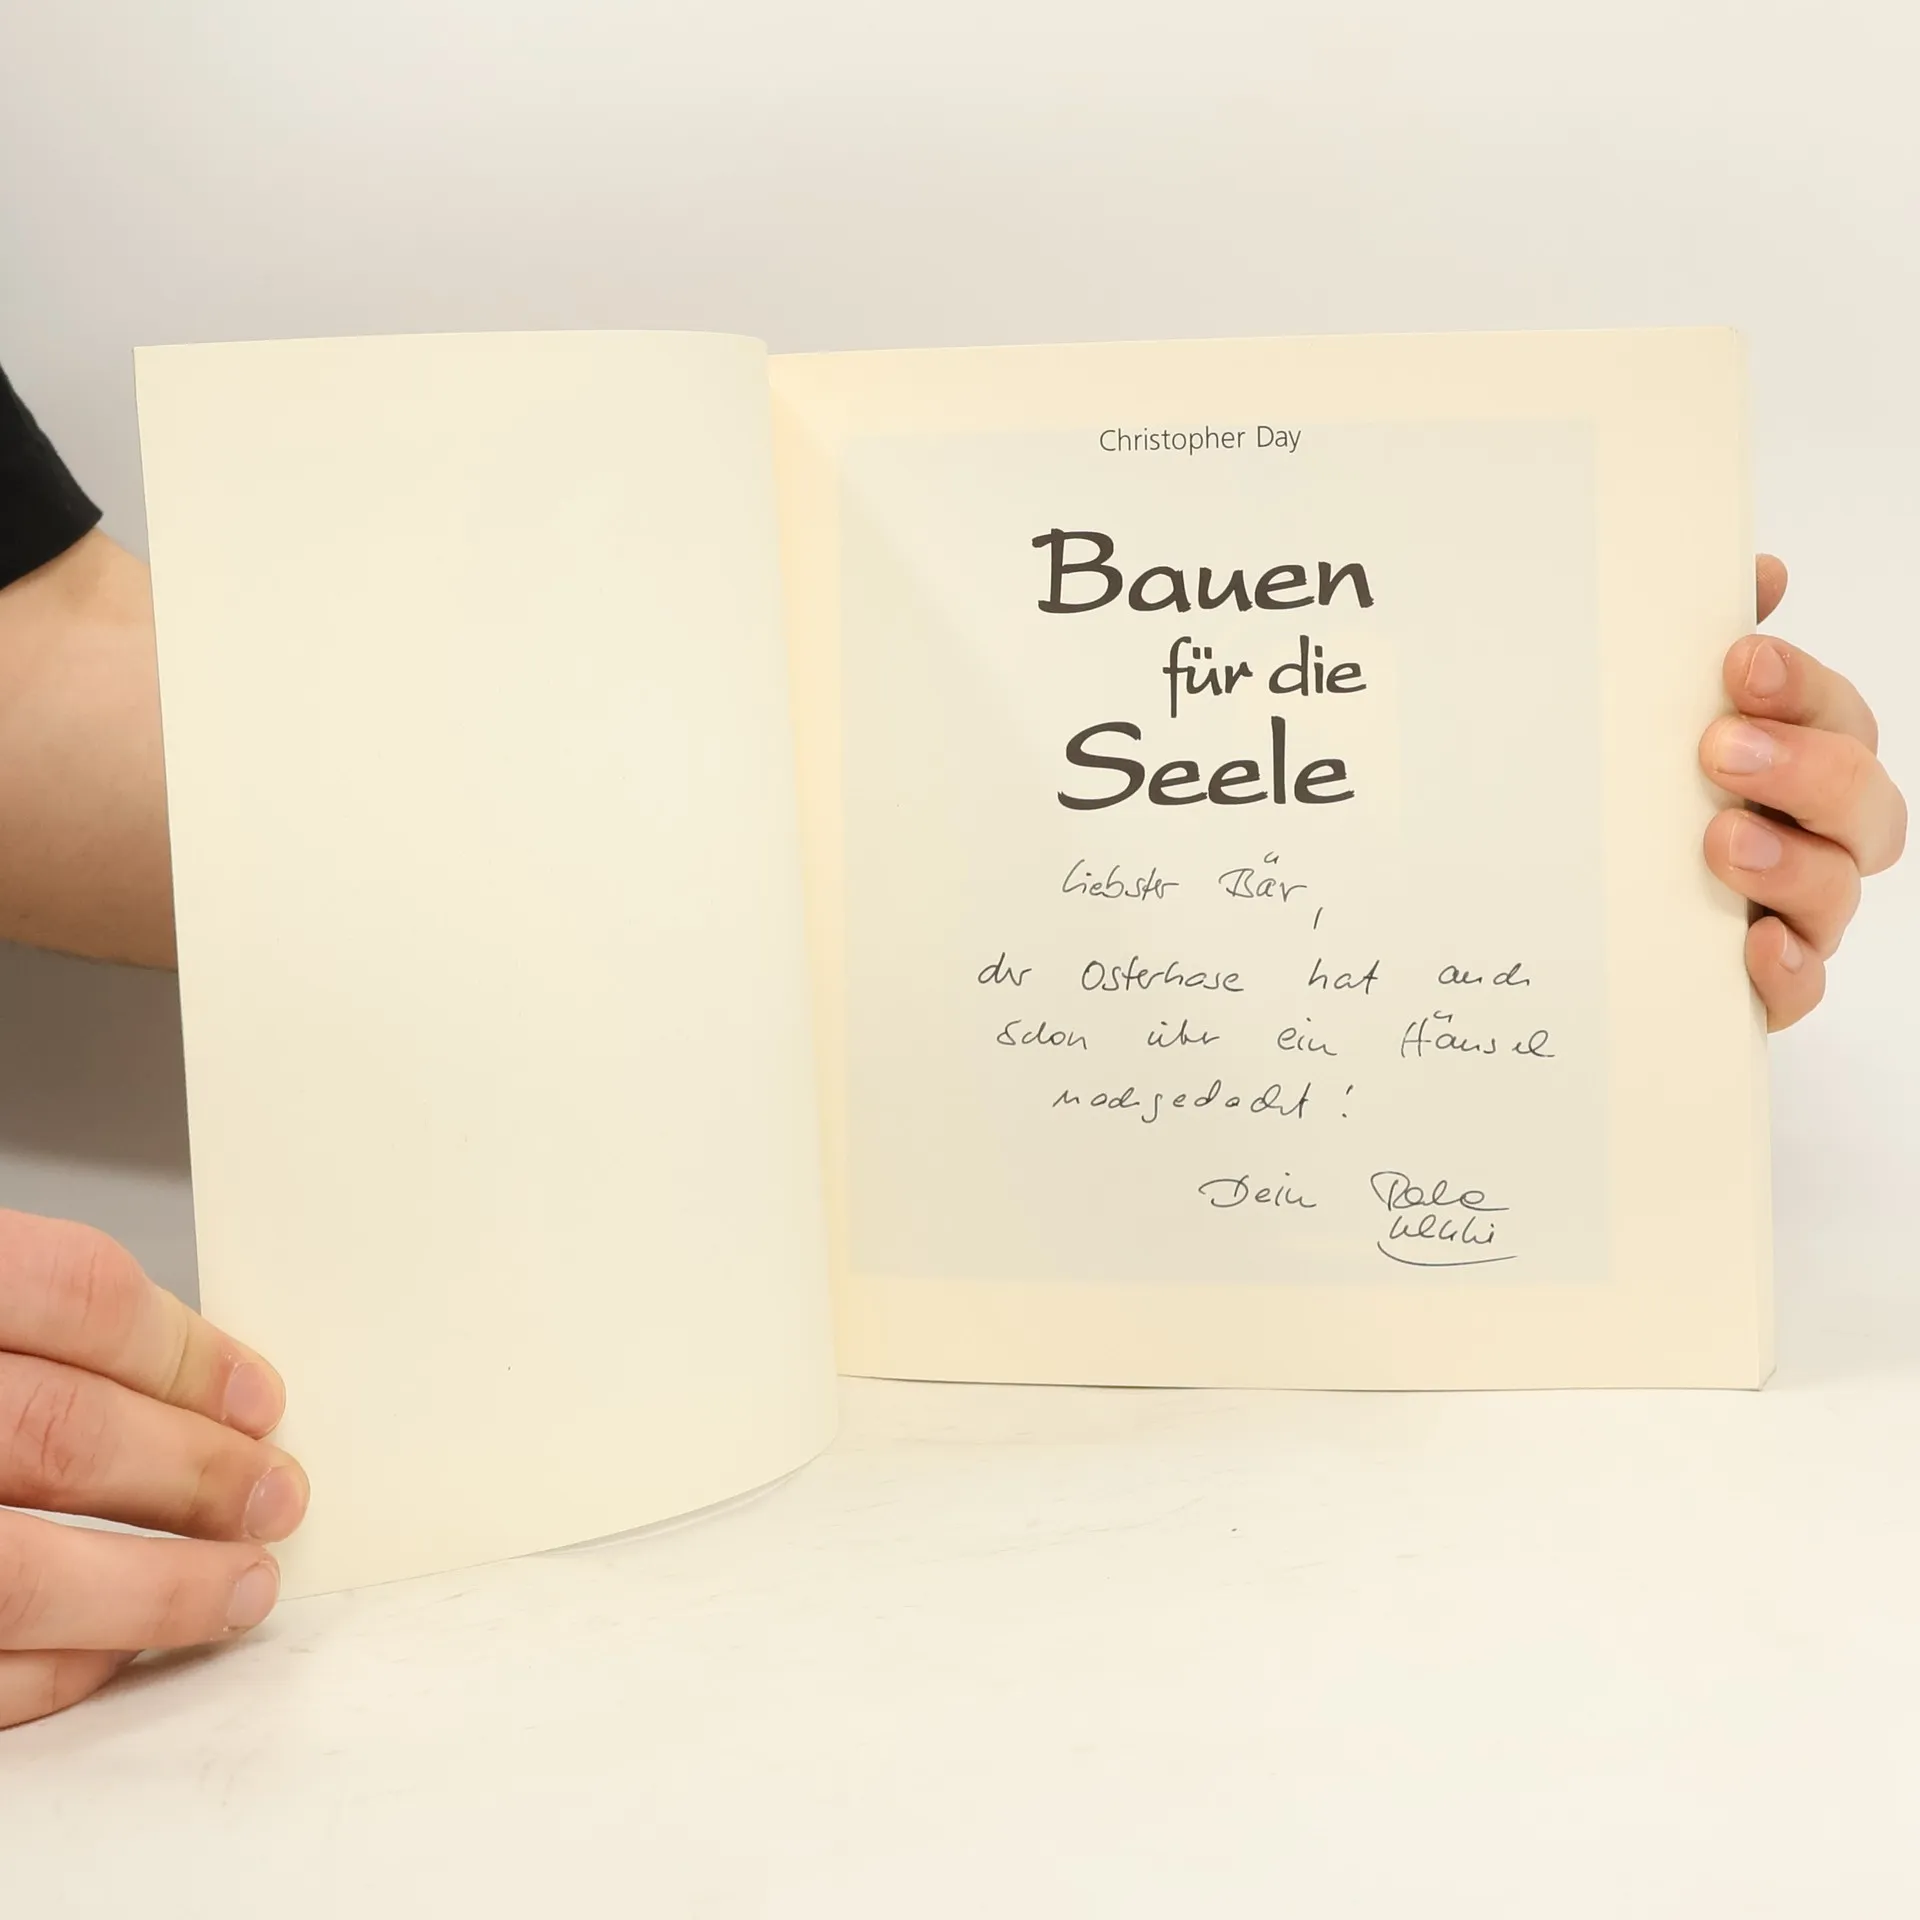 Christopher Day
Bauen
für die
Seele
Liebster Bär,
der Osterhase hat auch
schon über ein Häusel
nachgedacht!
Dein